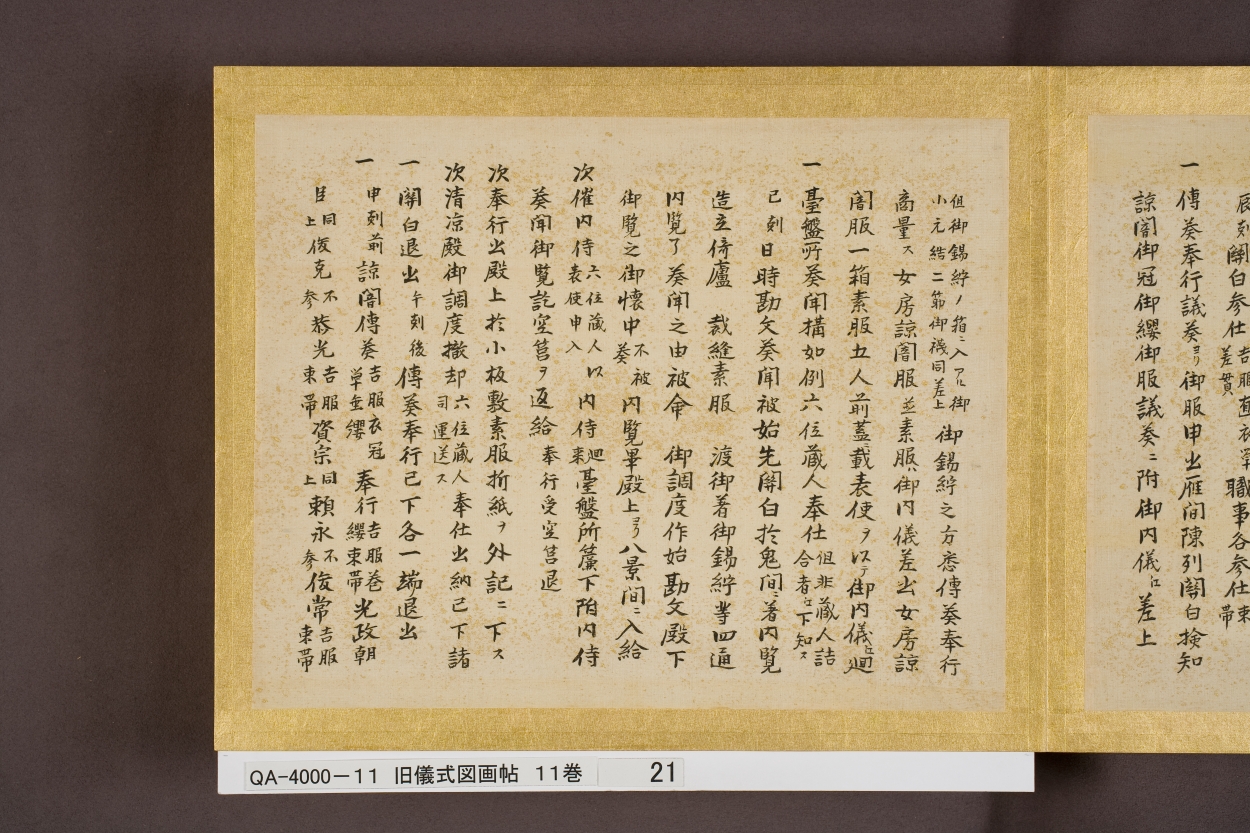 辰刻関白参仕
職事各参仕
一傳奏奉行議奏ヨリ御服申出雁間陳列関白検知
諒闇御冠御纓御服議奏ニ附御内儀江差上
但御錫紵ノ箱ニ入アル御
小元結二筋御襪同差上
御錫紵之方悉傳奏奉行
商量ス女房諒闇服並素服ハ御内儀差出女房諒
闇服一箱素服五人前蓋ニ載表使ヲ以テ御内儀江廻
一臺盤所奏聞構如例六位蔵人奉仕但非蔵人詰合者江下知ス
巳刻日時勘文奏聞被始先関白於鬼間ニ著内覧
造立倚廬 裁縫素服 渡御著御錫紵等四通
内覧了奏聞之由被命 御調度作始勘文殿下
御覧之御懐中不被奏内覧畢殿上ヨリ八景間ニ入給
次催内侍六位蔵人以表使申入内侍廻来臺盤所簾下附内侍
奏聞御覧訖空筥ヲ返給奉行受空筥退
次奉行出殿上於小板敷素服折紙ヲ外記ニ下ス
次清凉殿御調度撤却六位蔵人奉仕出納已下諸司運送ス
一関白退出午刻後傳奏奉行已下各一端退出
一申刻前諒闇傳奏吉服衣冠草垂纓奉行吉服巻纓束帯光政朝
臣同上俊克不参恭光吉服束帯資宗同上頼永不参俊常吉服束帯
QA-4000-11 旧儀式図画帖 11巻 21